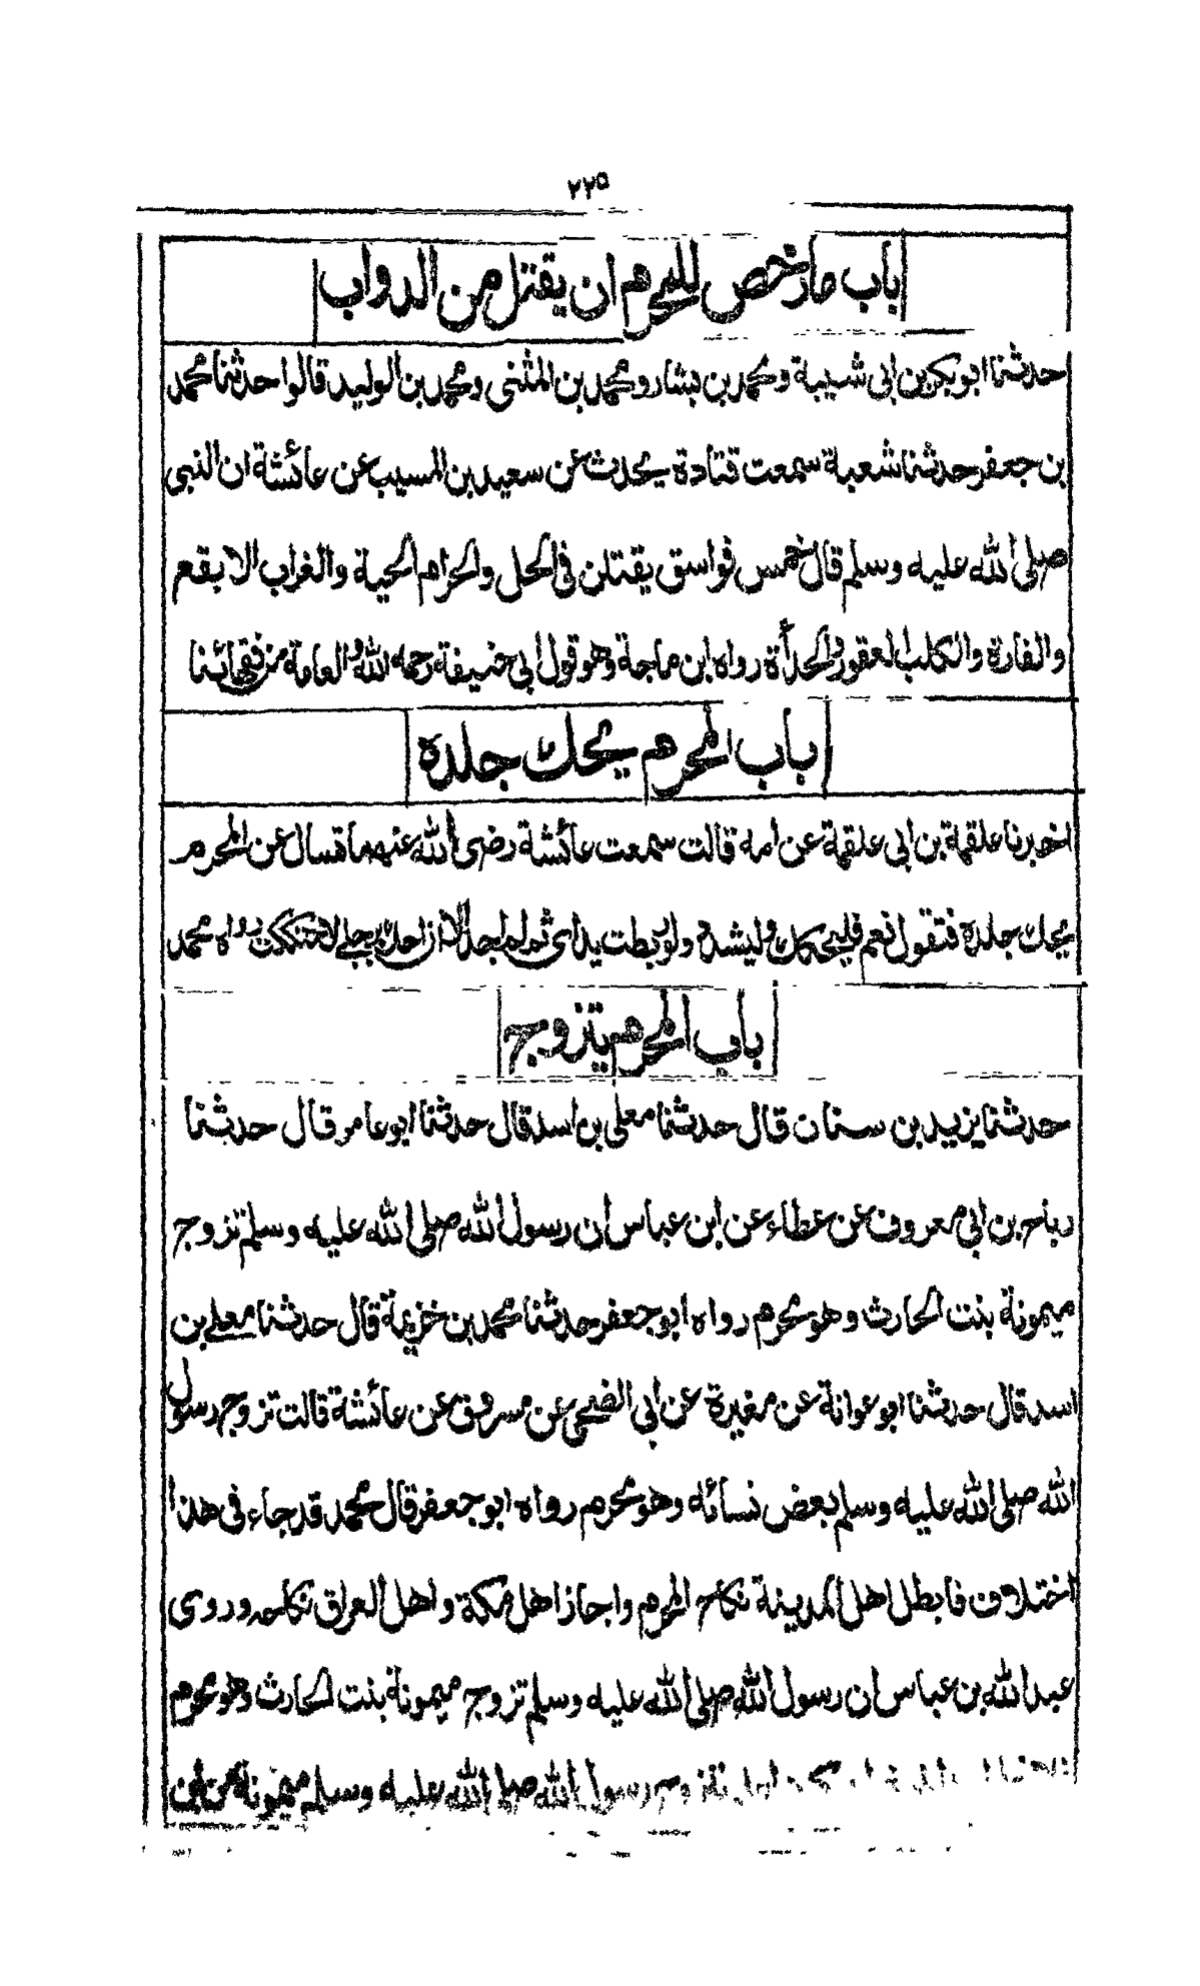 ٢٢٥
باب ما رخص للمحرم ان يقتل من الدواب
حدثنا ابو بكر بن ابى شيبة ومحمد بن بشار ومحمد بن المثنى ومحمد بن الوليد قالوا حدثنا محمد
بن جعفر حدثنا شعبة سمعت قتادة يحدث عن سعيد بن المسيب عن عائشة ان النبى
صلى الله عليه وسلم قال خمس فواسق يقتلن فى الحل والحرام الحية والغراب الابقع
والفارة والكلب العقور والحدأة رواه ابن ماجة وهو قول ابى حنيفة رحمه الله والعامة من فقهائنا
باب المحرم يحك جلده
اخبرنا علقمة بن ابى علقمة عن امه قالت سمعت عائشة رضى الله عنهما تسال عن المحرم
يحك جلده فتقول نعم فليحكك وليشدد ولو ربطت يداى ثم لم اجد الا ان احك برجلى لاحتككت رواه محمد
باب المحرم يتزوج
حدثنا يزيد بن سنان قال حدثنا معلى بن اسد قال حدثنا ابو عامر قال حدثنا
رباح بن ابى معروف عن عطاء عن ابن عباس ان رسول الله صلى الله عليه وسلم تزوج
ميمونة بنت الحارث وهو محرم رواه ابو جعفر حدثنا محمد بن خزيمة قال حدثنا معلى بن
اسد قال حدثنا ابو عوانة عن مغيرة عن ابى الضحى عن مسروق عن عائشة قالت تزوج رسول
الله صلى الله عليه وسلم بعض نسائه وهو محرم رواه ابو جعفر قال محمد قد جاء فى هذا
اختلاف فابطل اهل المدينة نكاح المحرم واجاز اهل مكة واهل العراق نكاحه وروى
عبد الله بن عباس ان رسول الله صلى الله عليه وسلم تزوج ميمونة بنت الحارث وهو محرم
رسول الله صلى الله عليه وسلم ميمونة من ابن